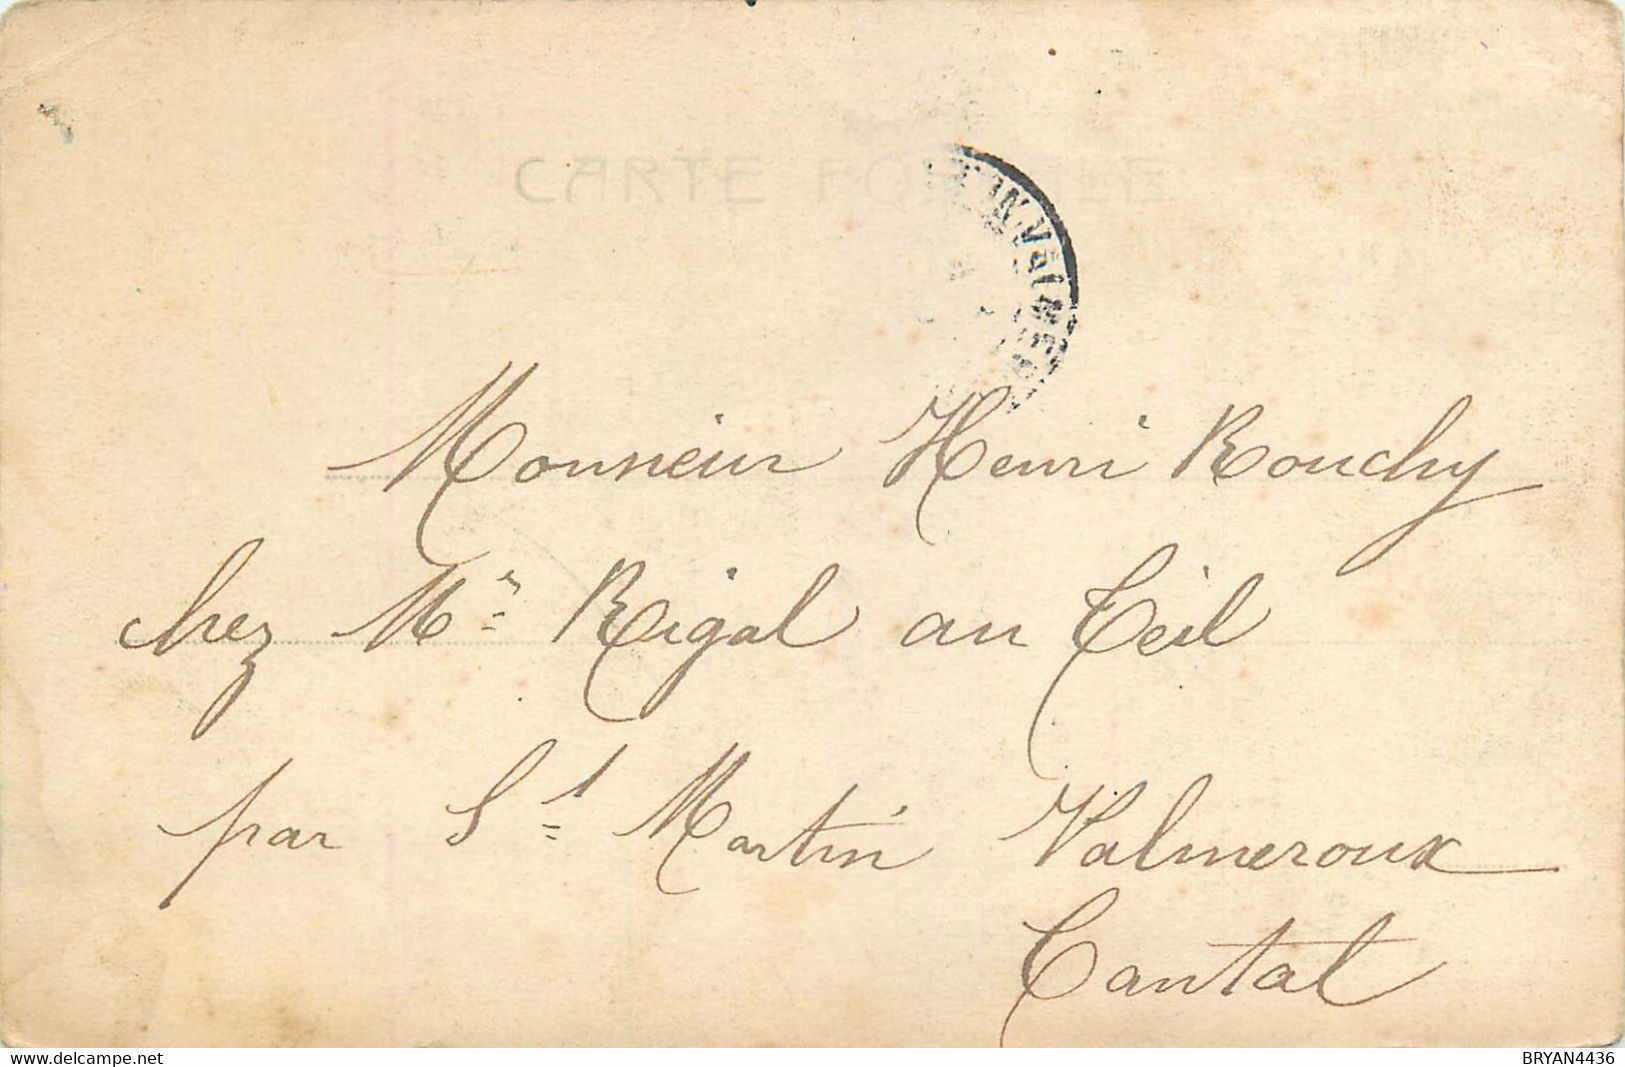 CARTE POSTALE
IN-VALMER
Monsieur Henri Rouchy
chez Mr Rigal au Teil
par St Martin Valmeroux
Cantal
www.delcampe.net
BRYAN4436